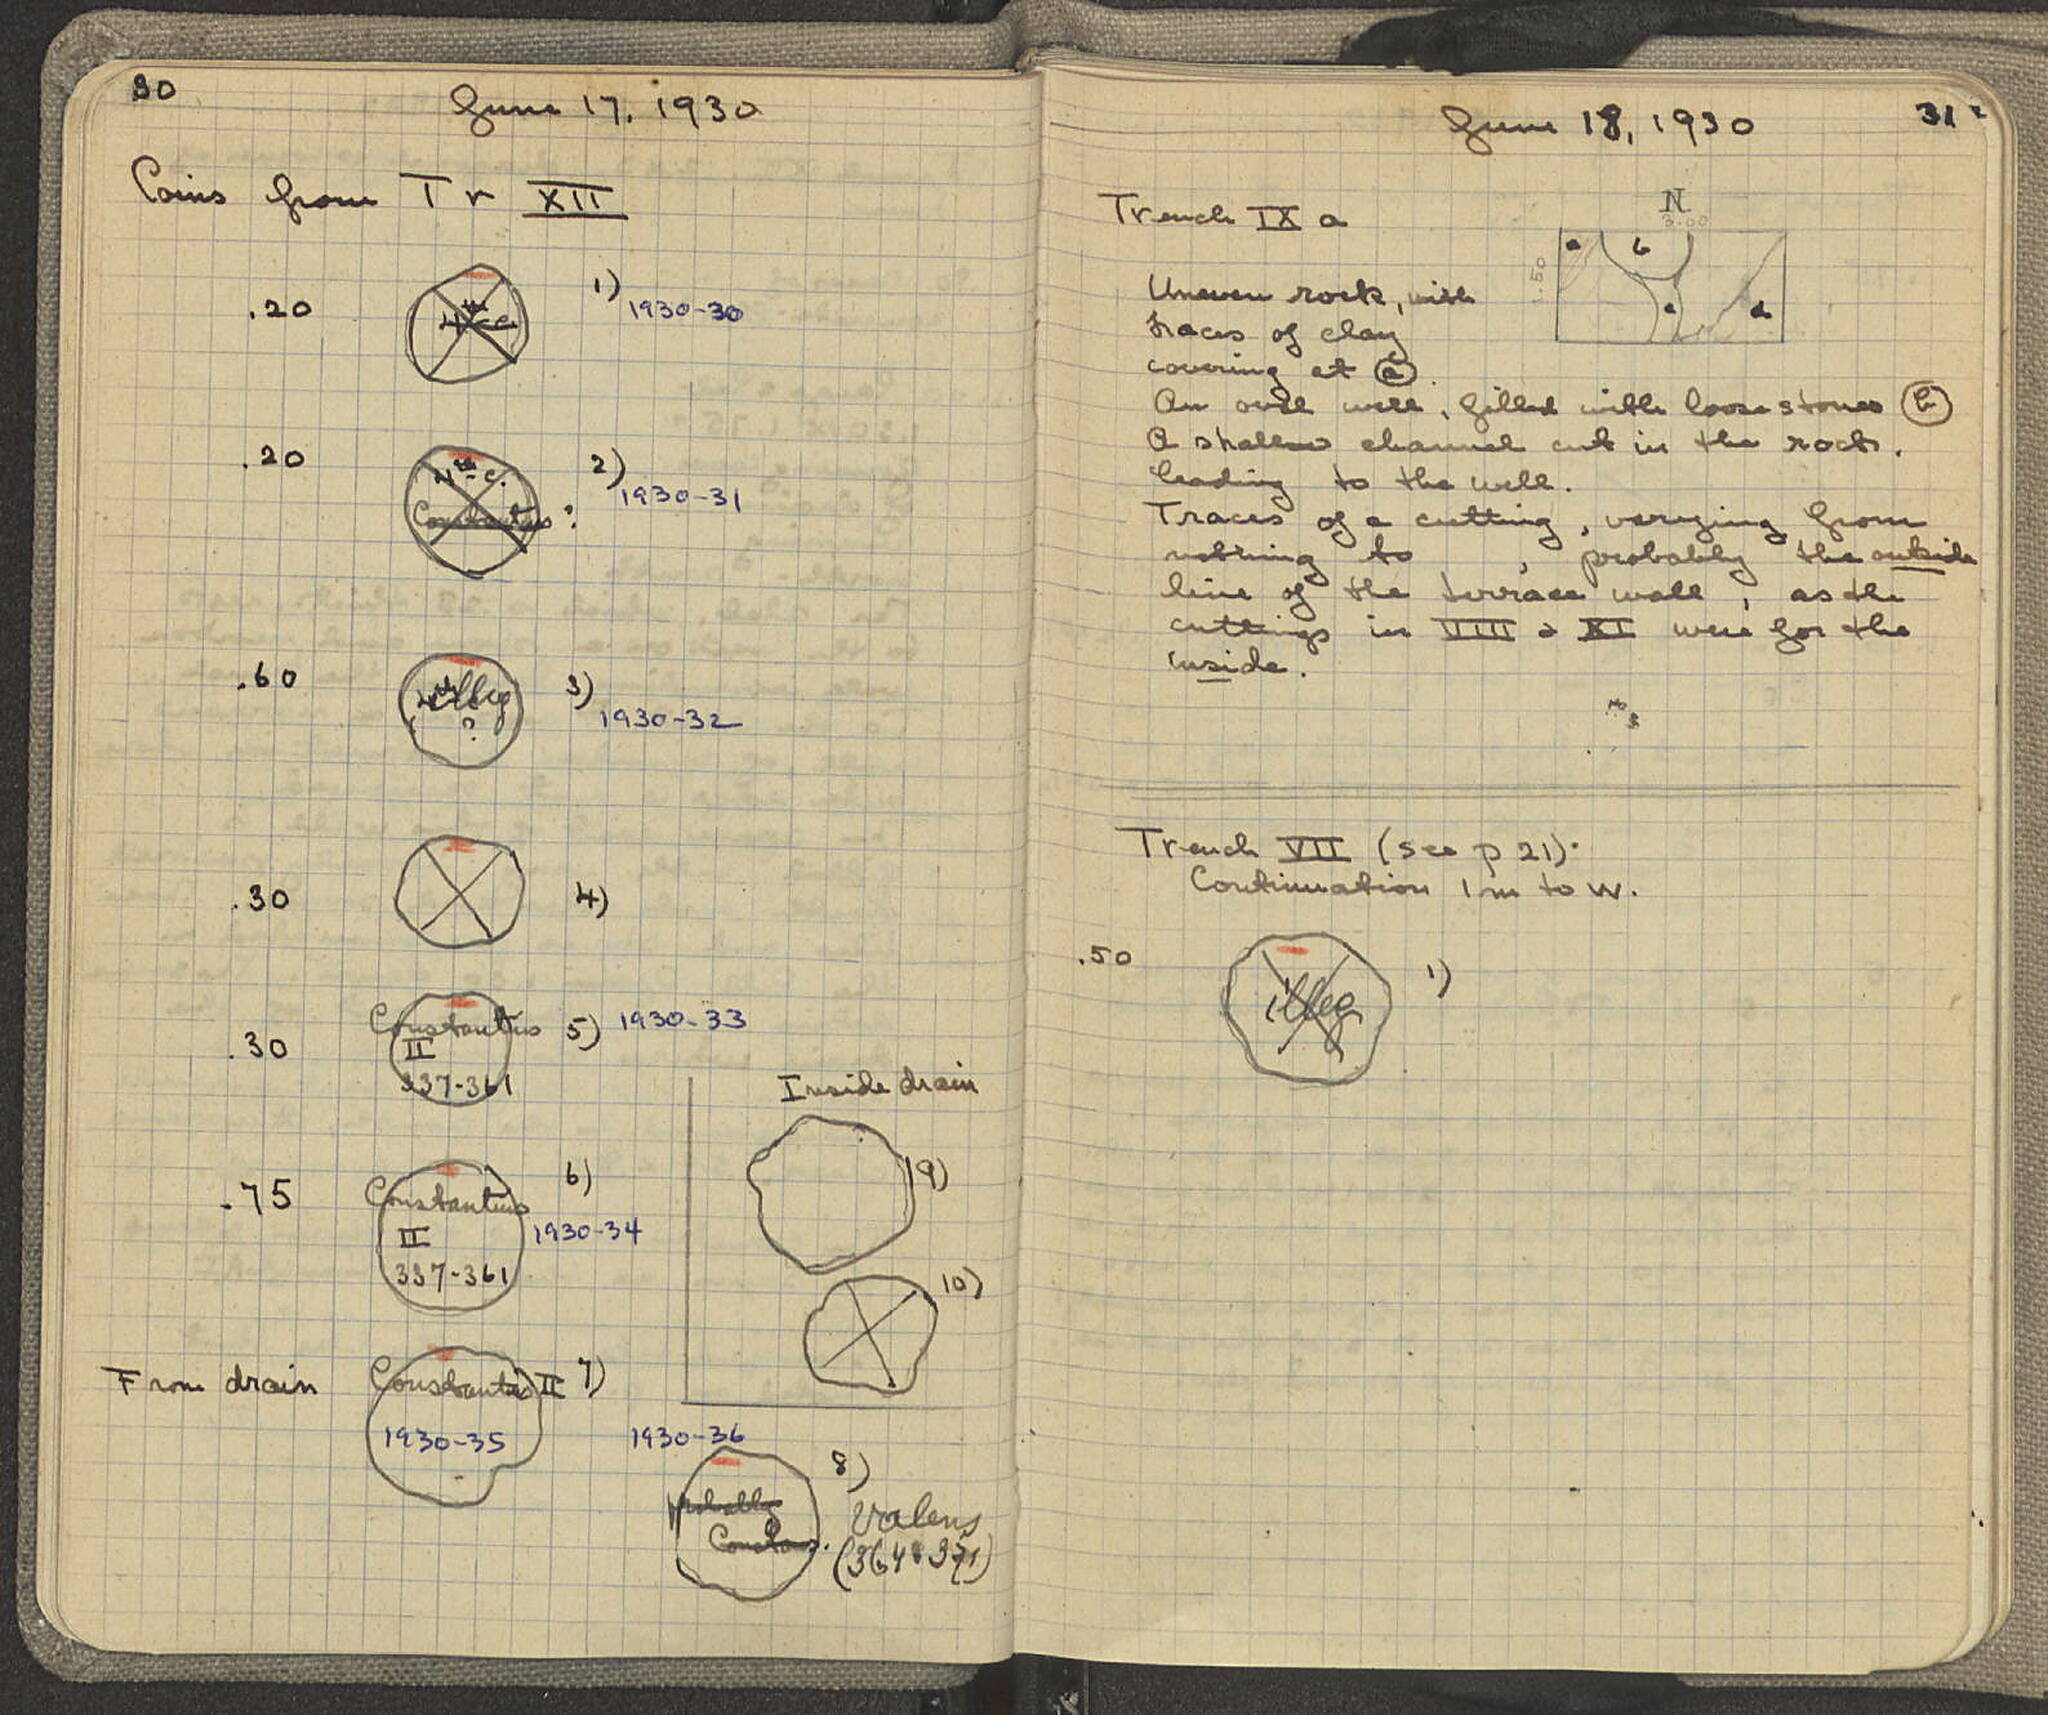 30
June 17, 1930
Coins from Tr XII
.20
4th c.
1)
1930-30
.20
4th c.
Constantius?
2)
1930-31
.60
4th
illeg
?
3)
1930-32
.30
4)
.30
Constantius
II
337-361
5)
1930-33
.75
Constantius
II
337-361
6)
1930-34
Inside drain
9)
10)
From drain
Constantius II
7)
1930-35
1930-36
probably
Constans.
8)
Valens
31
June 18, 1930
Trench IX a
N
3.00
.50
a
b
c
d
Uneven rock, with
traces of clay
covering at a.
An oval well, filled with loose stones b
A shallow channel cut in the rock,
leading to the well.
Traces of a cutting, varying from
nothing to , probably the outside
line of the terrace wall, as the
cuttings in VIII & XI were for the
inside.
Trench VII (see p 21).
Continuation 1 m to W.
.50
illeg
1)